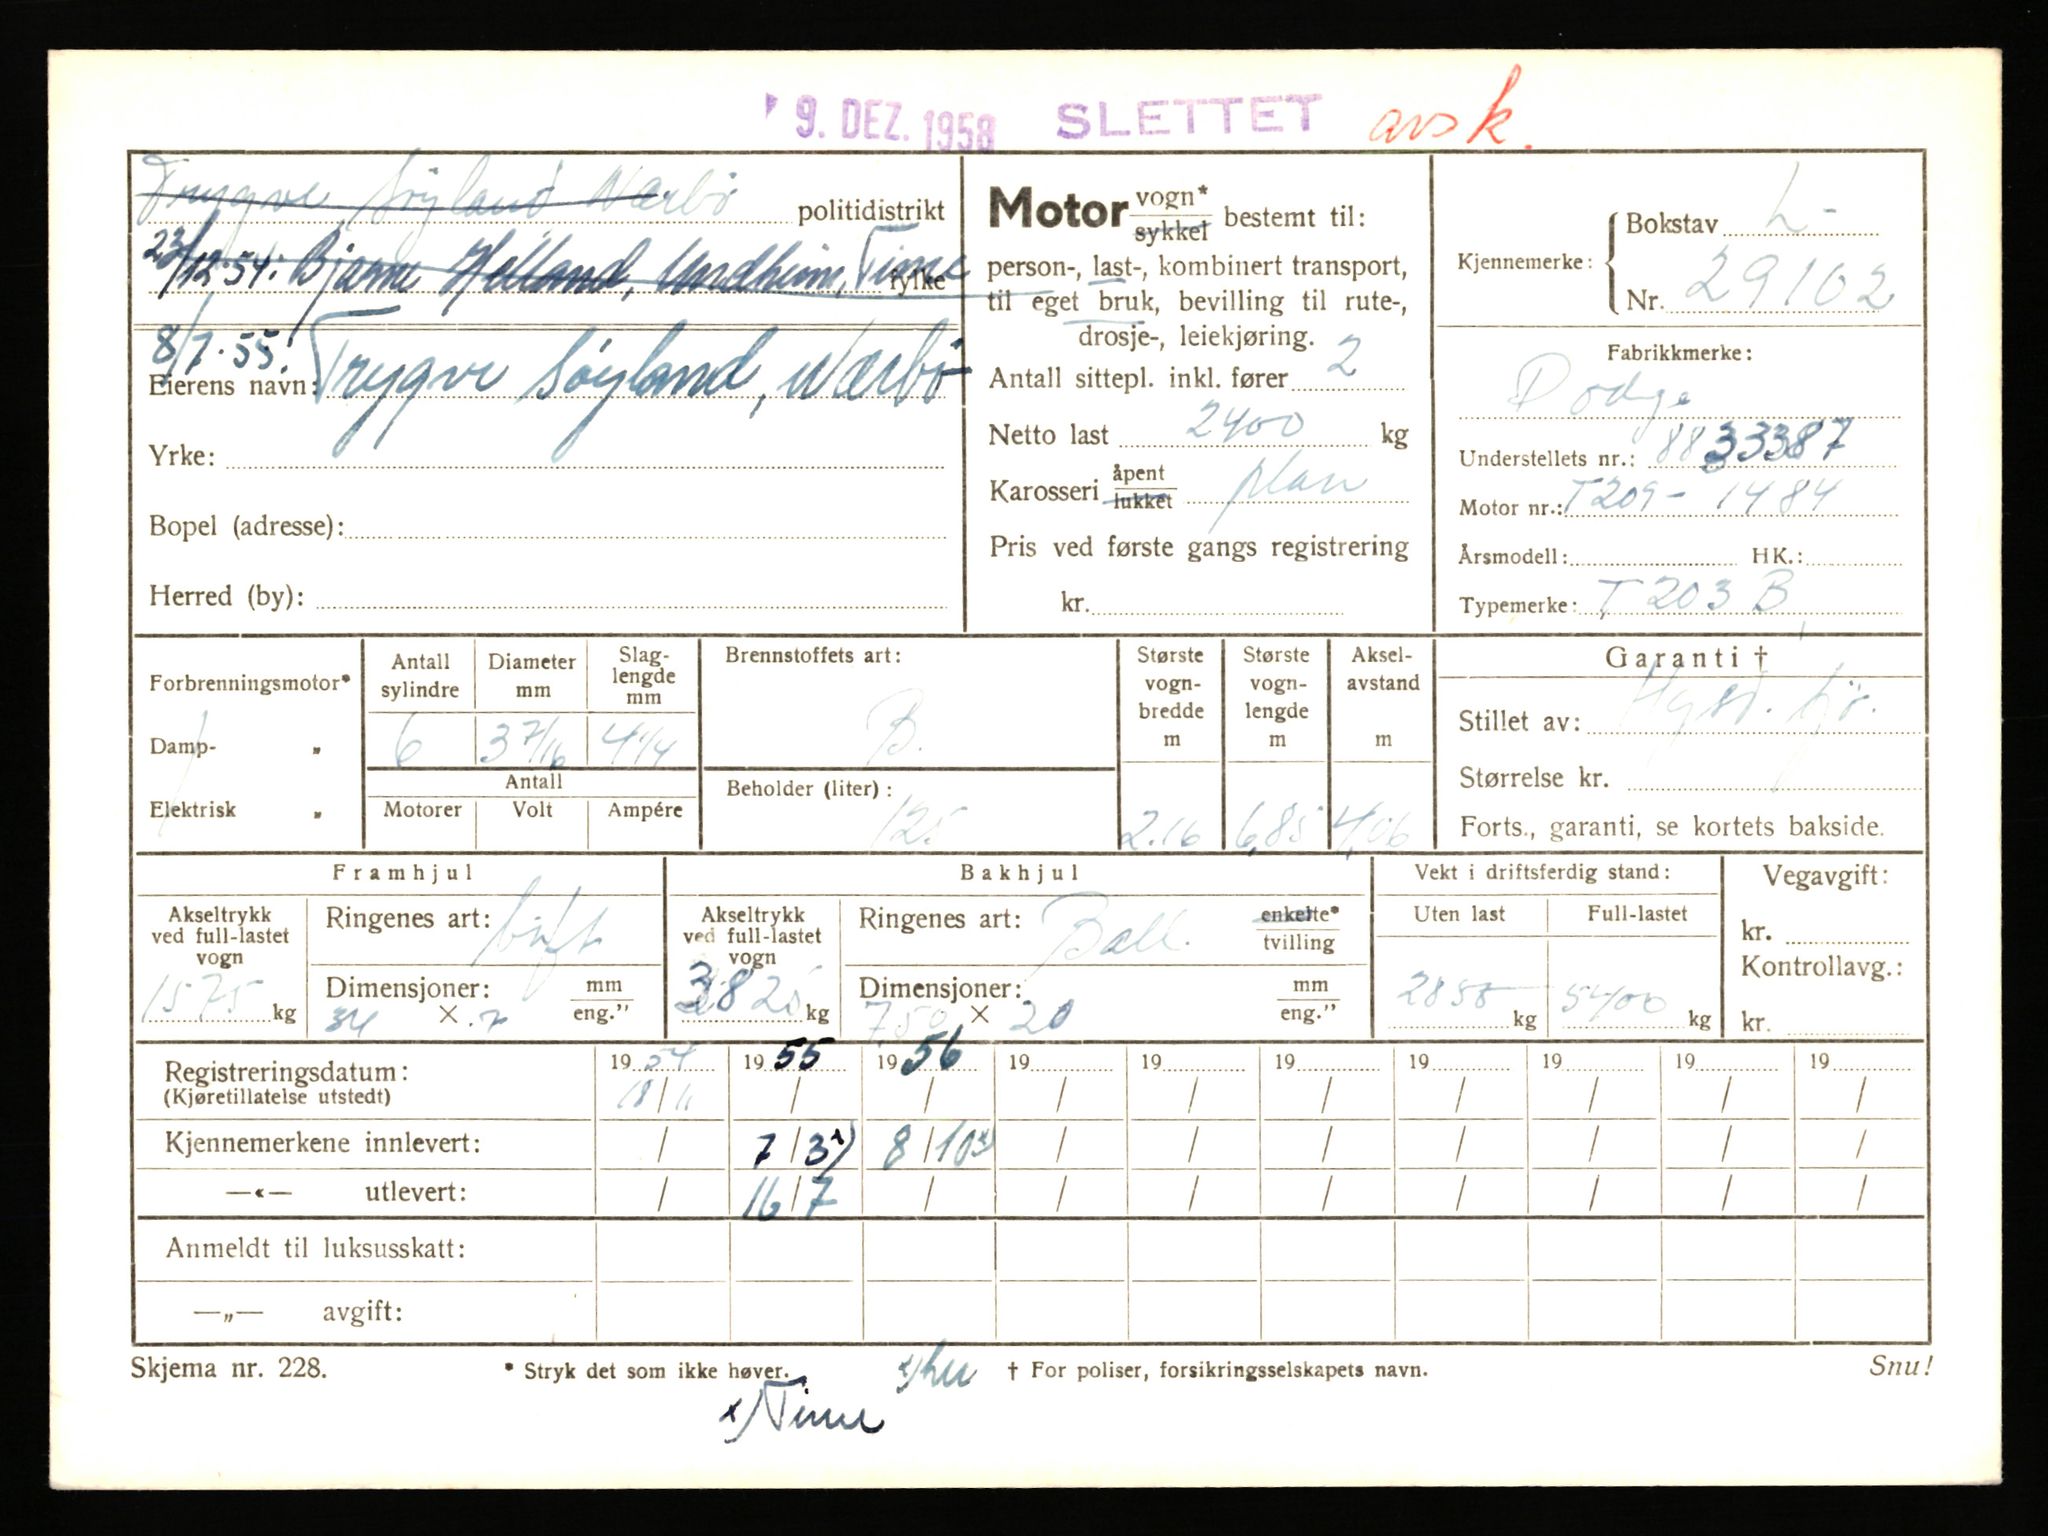 9. DEZ. 1958 SLETTET avsk.
Trygve Søyland Nærbø politidistrikt
23/12-54: Bjarne Helland, Undheim, Time fylke
8/7-55. Trygve Søyland, Nærbø
Eierens navn:
Yrke:
Bopel (adresse):
Herred (by):
Motor vogn* sykkel bestemt til:
person-, last-, kombinert transport,
til eget bruk, bevilling til rute-,
drosje-, leiekjøring.
Antall sittepl. inkl. fører 2
Netto last 2400 kg
Karosseri åpent lukket plan
Pris ved første gangs registrering
kr.
Kjennemerke: Bokstav L-
Nr. 29102
Fabrikkmerke:
Dodge
Understellets nr.: 8833387
Motor nr.: T209-1484
Årsmodell: HK.:
Typemerke: T203B
Forbrenningsmotor*
Damp- "
Elektrisk "
Antall sylindre 6
Diameter mm 3 7/16
Slag-
lengde
mm 4 1/4
Antall
Motorer Volt Ampére
Brennstoffets art:
B.
Beholder (liter):
125
Største
vogn-
bredde
m
2.16
Største
vogn-
lengde
m
6,85
Aksel-
avstand
m
4,06
Garanti †
Stillet av:
Størrelse kr.
Forts., garanti, se kortets bakside.
Framhjul
Akseltrykk
ved full-lastet
vogn
1575 kg
Ringenes art: luft
Dimensjoner: mm
34 × 7 eng."
Bakhjul
Akseltrykk
ved full-lastet
vogn
3825 kg
Ringenes art: Ball. enkelte*
tvilling
Dimensjoner: mm
750 × 20 eng."
Vekt i driftsferdig stand:
Uten last Full-lastet
2850 kg 5400 kg
Vegavgift:
kr.
Kontrollavg.:
kr.
Registreringsdatum: 19 54 19 55 19 56 19 19 19 19 19 19 19
(Kjøretillatelse utstedt) 18/11 / / / / / / / / /
Kjennemerkene innlevert: / 7/3 x) 8/10 x) / / / / / / /
—«— utlevert: / 16/7 / / / / / / / /
Anmeldt til luksusskatt:
—„— avgift:
Skjema nr. 228. * Stryk det som ikke høver. x) hu † For poliser, forsikringsselskapets navn. Snu!
x) Time